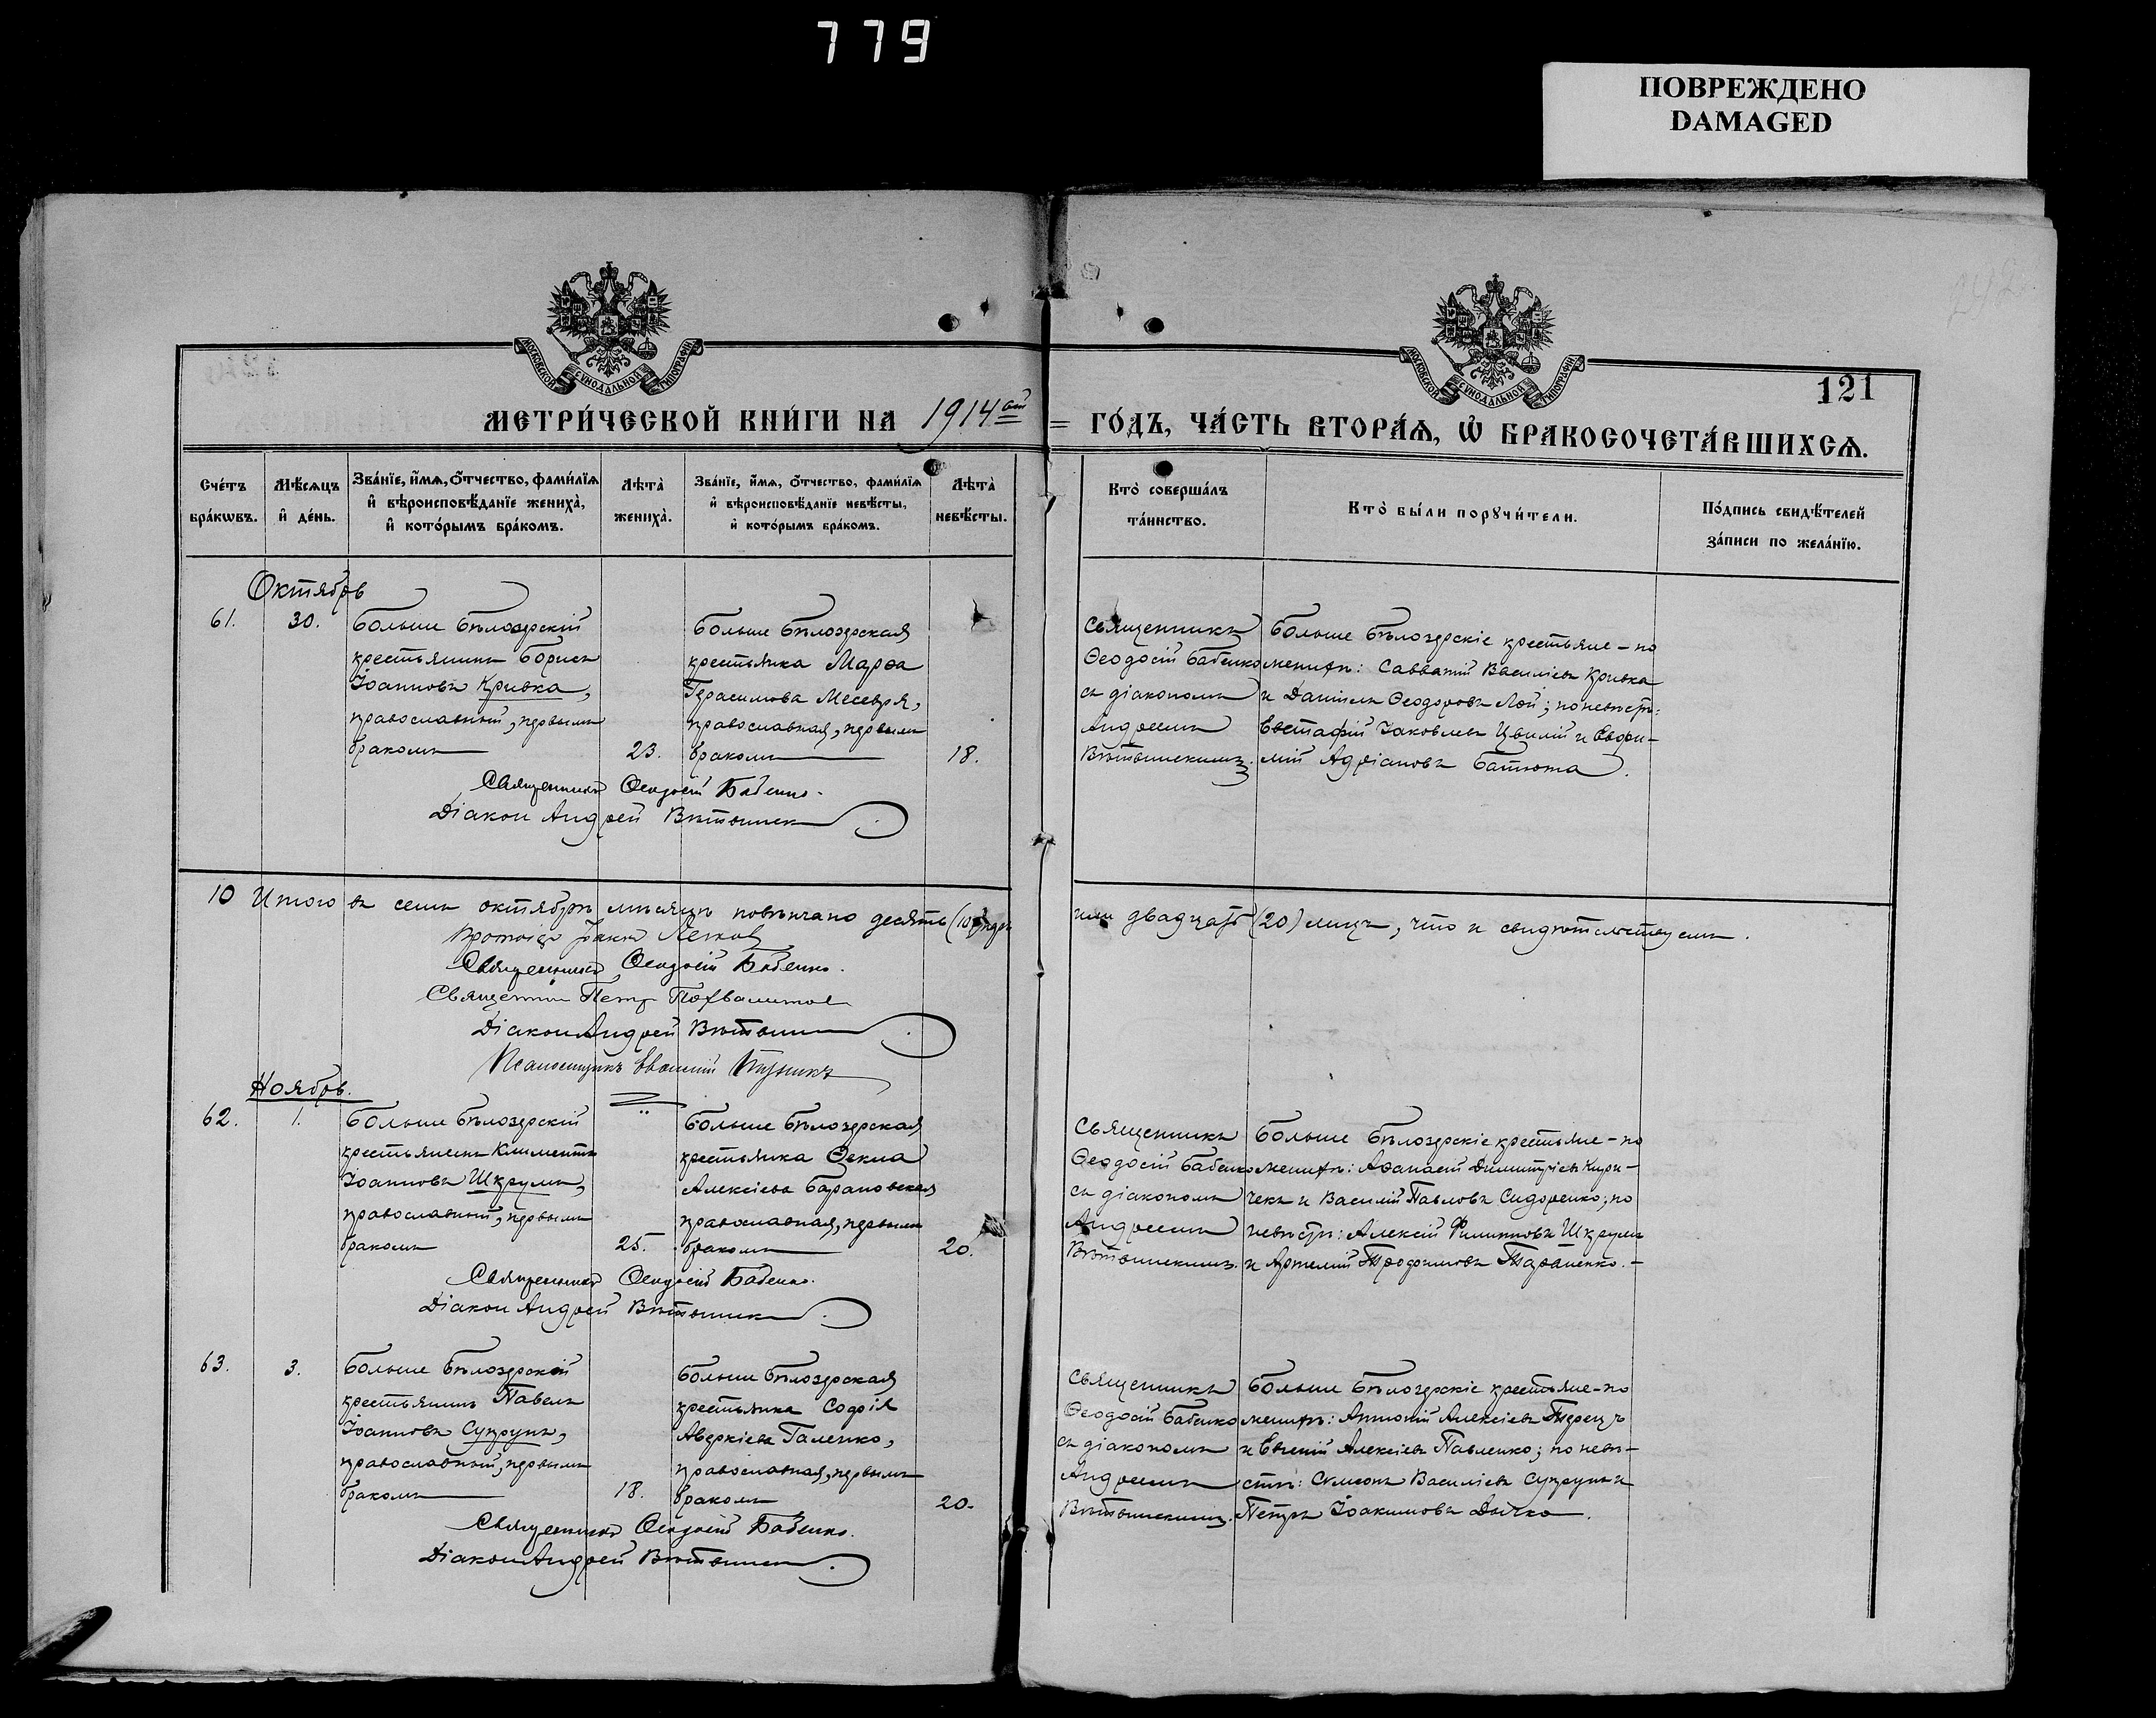 779
ПОВРЕЖДЕНО
DAMAGED
МОСКОВСКОЙ СѴНОДАЛЬНОЙ ТИПОГРАФІИ
МОСКОВСКОЙ СѴНОДАЛЬНОЙ ТИПОГРАФІИ
121
МЕТРИ́ЧЕСКОЙ КНИ́ГИ НА 1914ый = ГО́ДЪ, ЧА́СТЬ ВТОРА́Ѧ, Ѡ҆ БРАКОСОЧЕТА́ВШИХСѦ.
Сче́тъ
бра́кѡвъ.
Мѣ́сѧцъ
и҆ де́нь.
Зва́нїе, и҆́мѧ, ѻ҆́тчество, фами́лїѧ
и҆ вѣроисповѣ́данїе жениха̀,
и҆ кото́рымъ бра́комъ.
Лѣ́та̀
жениха̀.
Зва́нїе, и҆́мѧ, ѻ҆́тчество, фами́лїѧ
и҆ вѣроисповѣ́данїе невѣ́сты,
и҆ кото́рымъ бра́комъ.
Лѣ́та̀
невѣ́сты.
Кто̀ соверша́лъ
та́инство.
Кто̀ бы́ли порꙋчи́тели.
По́дпись свидѣ́телей
за́писи по жела́нїю.
Октябрь
61.
30.
Больше Бѣлозерскій
крестьянинъ Борисъ
Іоанновъ Кривка,
православный, первымъ
бракомъ
23.
Больше Бѣлозерская
крестьянка Марѳа
Герасимова Месевря,
православная, первымъ
бракомъ
18.
Священникъ
Ѳеодосій Бабенко
съ діакономъ
Андреемъ
Больше Бѣлозерскіе крестьяне - по
женихѣ: Савватій Василіевъ Кривка
и Даніилъ Ѳеодоровъ Лой; по невѣстѣ:
Евстафій Іаковлевъ Цвилій и Евфи-
мій Адріановъ Батюта.
Священникъ Ѳеодосій Бабенко.
Діакон Андрей
10 Итого въ семъ октябрѣ мѣсяцѣ повѣнчано десять (10)
или двадцать (20) лицъ, что и свидѣтельствуемъ.
Священникъ Ѳеодосій Бабенко.
Священник Петр
Діакон Андрей
Псаломщикъ
Ноябрь.
62.
1.
Больше Бѣлозерскій
крестьянинъ Климентъ
Іоанновъ Шкрумъ,
православный, первымъ
бракомъ
25.
Больше Бѣлозерская
крестьянка Ѳекла
Алексіева Барановская
православная, первымъ
бракомъ
20.
Священникъ
Ѳеодосій Бабенко
съ діакономъ
Андреемъ
Больше Бѣлозерскіе крестьяне - по
женихѣ: Аѳанасій Димитріевъ Кири-
чекъ и Василій Павловъ Сидоренко; по
невѣстѣ: Алексій Филипповъ Шкрумъ
и Артемій Трофимовъ Тараненко. -
Священникъ Ѳеодосій Бабенко.
Діакон Андрей
63.
3.
Больше Бѣлозерскій
крестьянинъ Павелъ
Іоанновъ Супрунъ,
православный, первымъ
бракомъ
18.
Больше Бѣлозерская
крестьянка Софія
Аверкіева Галенко,
православная, первымъ
бракомъ
20.
Священникъ
Ѳеодосій Бабенко
съ діакономъ
Андреемъ
Больше Бѣлозерскіе крестьяне - по
женихѣ: Антоній Алексіевъ Терецъ
и Евгеній Алексіевъ Павленко; по невѣ-
стѣ: Симеонъ Василіевъ Супрунъ и
Петръ Іоакимовъ Дычко.
Священникъ Ѳеодосій Бабенко.
Діакон Андрей